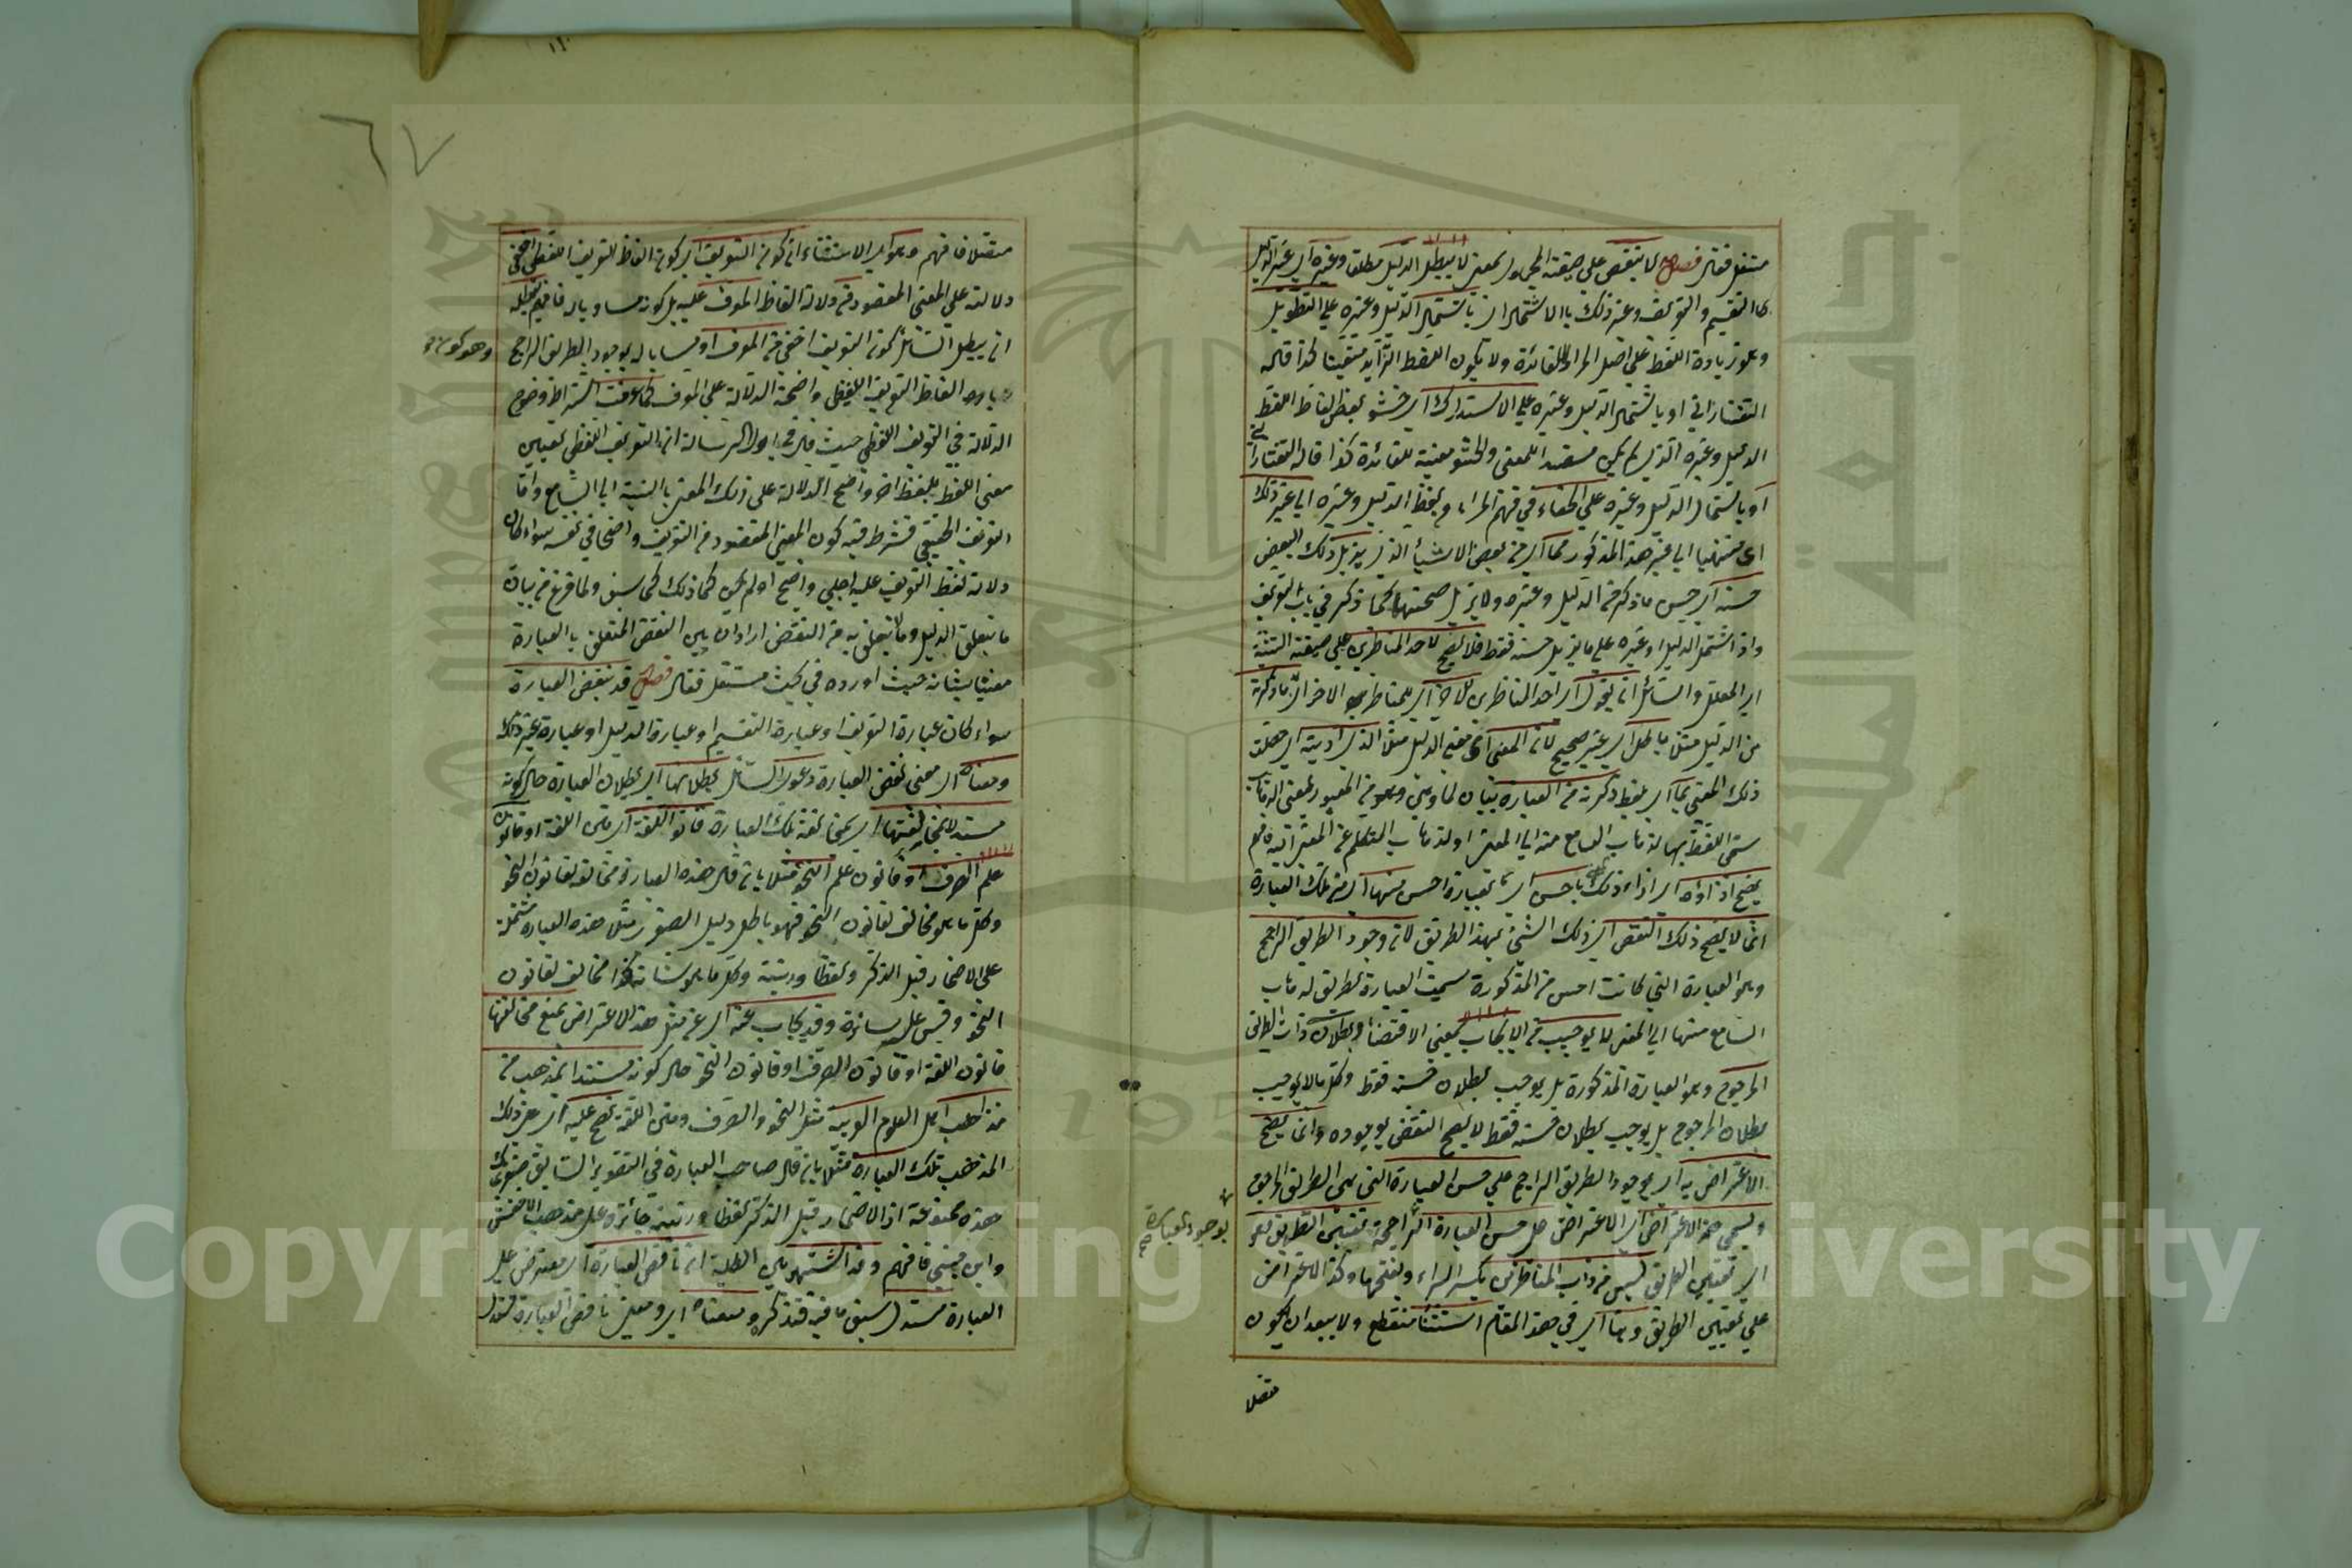 مستقل فقال فصل لا ينقض على صيغة المجهول بمعنى لا يبطل الدليل مطلقا وغيره اي غير الدليل
كالتقسيم والتعريف وغير ذلك بالاشتمال اي باشتمال الدليل وغيره على التطويل
وهو زيادة اللفظ على اصل المراد لا لفائدة ولا يكون اللفظ الزائد متعينا كذا قاله
التفتازاني او باشتمال الدليل وغيره على الاستدراك اي حشو بعض الفاظ اللفظ
الدليل وغيره الذي لم يكن مفيدا للمعنى والحشو معينة للفائدة كذا قاله التفتازاني
او باشتمال الدليل وغيره على الخفاء في فهم المراد من لفظ الدليل وغيره الى غير ذلك
اى منتهيا الى غير هذه المذكور مما اي من بعض الاشياء الذي يزيل ذلك البعض
حسنه اي حسن ما ذكر من الدليل وغيره ولا يزيل صحتها كما ذكر في باب التعريف
واذا اشتمل الدليل او غيره على ما يزيل حسنه فقط فلا يصح لاحد المناظرين على صيغة التثنية
اي المعلل والسائل ان يقول اي احد المناظرين للاخر اي للمناظر الاخر ان ما ذكرته
من الدليل مثلا باطل اي غير صحيح لان المعنى اى معنى الدليل مثلا الذي اديته اي حصلت
ذلك المعنى بما اي بلفظ ذكرته من العبارة بيان لما وهي وهو من العبور لمعنى الذهاب
سمى اللفظ بها لذهاب السامع منه الى المعنى او لذهاب المتكلم من المعنى اليه فافهم
يصح اداؤه اي اداء ذلك المعنى باحسن اي بعبارة احسن منها اي من تلك العبارة
انما لا يصح ذلك النقض اي ذلك الشيء بهذا الطريق لان وجود الطريق الراجح
وهو العبارة التي كانت احسن من المذكورة سميت العبارة بطريق لذهاب
السامع منها الى المعنى لا يوجب من الايجاب بمعنى الاقتضاء بطلان ذات الطريق
المرجوح وهو العبارة المذكورة بل يوجب بطلان حسنه فقط وكل ما لا يوجب
بطلان المرجوح بل يوجب بطلان حسنه فقط لا يصح النقض بوجوده وانما يصح
الاعتراض به اي بوجود الطريق الراجح على حسن العبارة التي هي الطريق المرجوح
ويسمى هذا الاعتراض اي الاعتراض على حسن العبارة الراجحة بتعيين الطريق وهو
بوجود العبارة
اي تعيين الطريق ليس من داب المناظرين بكسر الراء وبفتحها وكذا الاعتراض
على تعيين الطريق وهنا اي في هذا المقام استثناء منقطع ولا يبعد ان يكون
متصلا
٦٧
متصلا فافهم وهو اي الاستثناء ان كون التعريف اي كون الفاظ التعريف اللفظي اخفى
دلالته على المعنى المقصود من دلالة الفاظ المعرف عليه بل كونه مساويا له فافهم يبطله
ان يبطل السائل كون التعريف اخفى من المعرف او مساويا له بوجود الطريق الراجح
وهو كون
الفاظ التعريف اللفظي واضحة الدلالة على المعرف كما عرفت اشتراط وضوح
الدلالة في التعريف اللفظي حيث قال في اول الرسالة ان التعريف اللفظي تعيين
معنى اللفظ بلفظ اخر واضح الدلالة على ذلك المعنى بالنسبة الى السامع واما
التعريف الحقيقي فشرط فيه كون المعنى المقصود من التعريف واضحا في نفسه سواء كان
دلالة لفظ التعريف عليه اجلى واضح او لم يكن كذلك كما سبق ولما فرغ من بيان
ما يتعلق بالدليل وما يتعلق به من النقض اراد ان يبين النقض المتعلق بالعبارة
معتنيا بشانه حيث اورده في بحث مستقل فقال فصل قد ينقض العبارة
سواء كان عبارة التعريف او عبارة التقسيم او عبارة الدليل او عبارة غير ذلك
ومعناه اي معنى نقض العبارة دعوى السائل بطلانها اي بطلان العبارة حال كونه
مستدلا بمخالفتها اي بمخالفة تلك العبارة قانون اللغة اي متن اللغة او قانون
علم الصرف او قانون علم النحو مثلا بان قال هذه العبارة مخالفة لقانون النحو
وكل ما هو مخالف لقانون النحو فهو باطل دليل الصغرى مثلا هذه العبارة مشتملة
على الاضمار قبل الذكر لفظا ورتبة وكل ما هو شانه كذا مخالف لقانون
النحو وقس عليه سائره وقد يجاب عنه اي عن مثل هذا الاعتراض بمنع مخالفتها
قانون اللغة او قانون الصرف او قانون النحو حال كونه مستندا بمذهب من
مذاهب اهل العلوم العربية مثل النحو والصرف ومتن اللغة يصح عليه اي على ذلك
المذهب تلك العبارة مثلا بان قال صاحب العبارة في التقرير السابق صغريك
هذه ممنوعة اذ الاضمار قبل الذكر لفظا ورتبة جائزة على مذهب الاخفش
وابن جني فافهم وقد اشتهر بين الطلبة ان ناقض العبارة اي معترض على
العبارة مستدل سبق ما فيه فتذكر ومعناه اي ومعنى ناقض العبارة مستدل